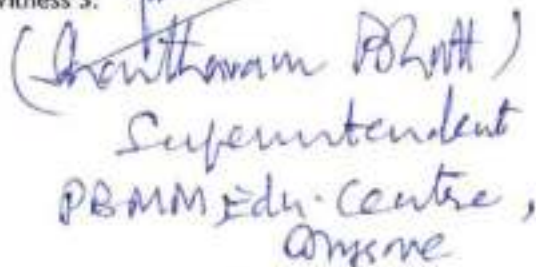 Witness 3:
(Shanthavam Bhatt)
Superintendent
PBMM, Edu. Centre,
Mysore